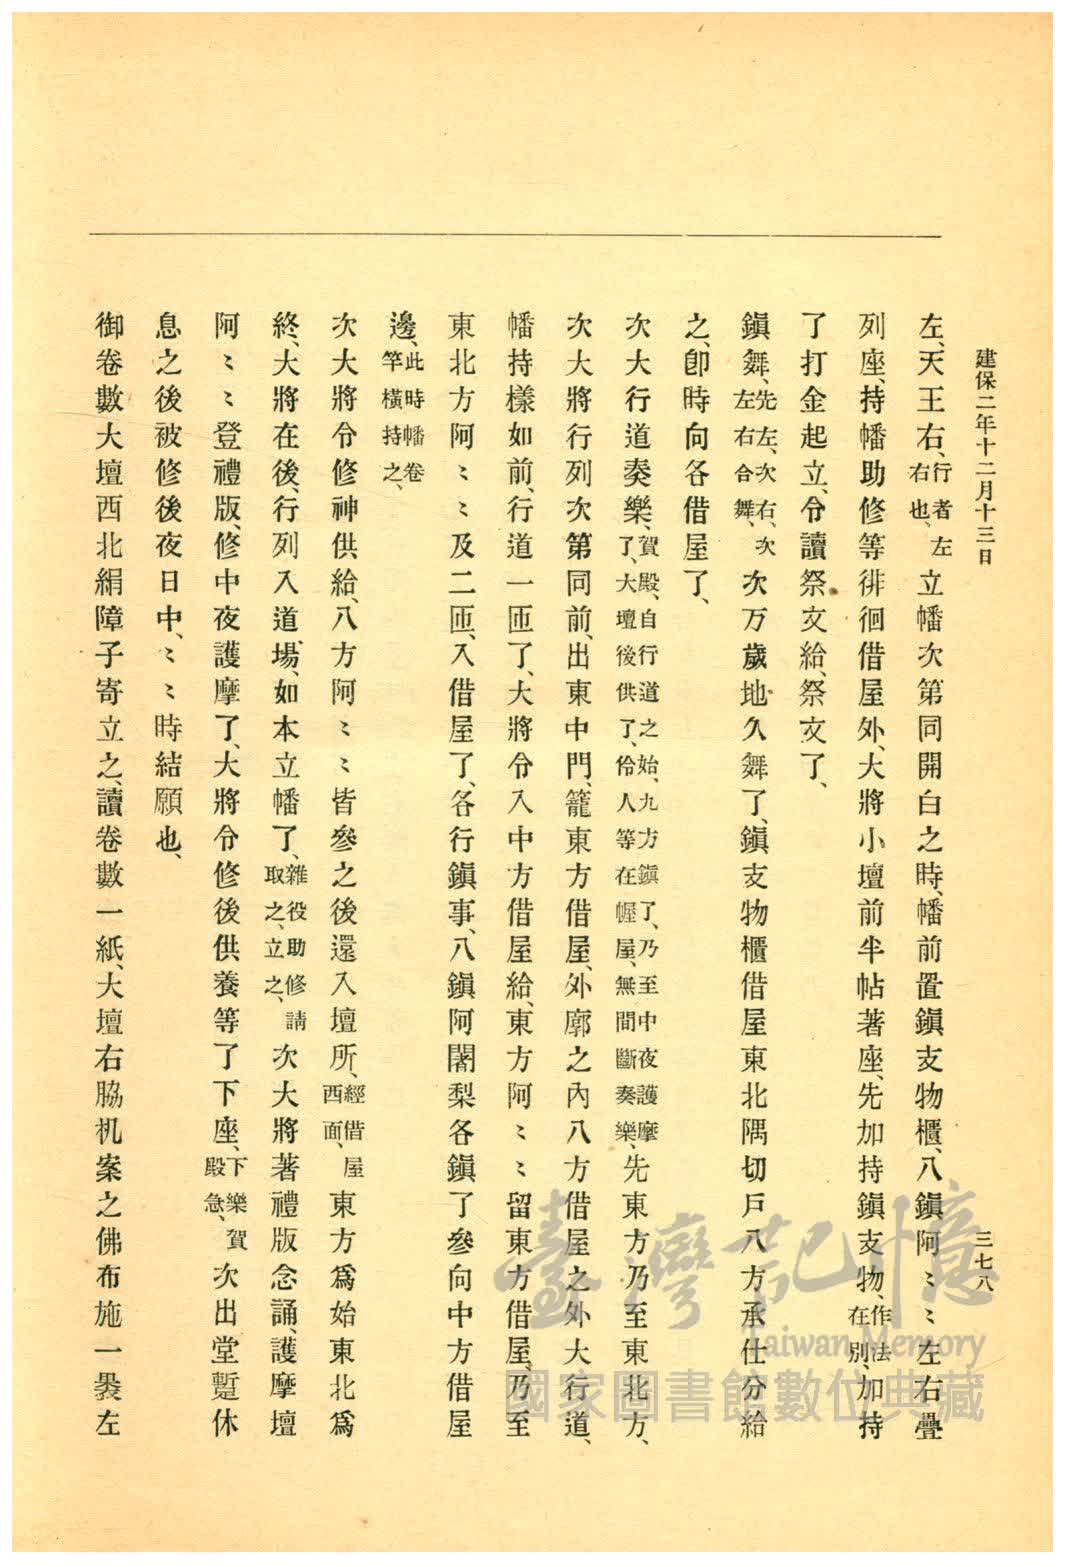 建保二年十二月十三日
三七八
左、天王右、行者左右也、立幡次第同開白之時、幡前置鎭支物櫃、八鎭阿〻〻左右疊
列座、持幡助修等徘徊借屋外、大將小壇前半帖著座、先加持鎭支物、作法在別、加持
了打金起立、令讀祭文給、祭文了、
鎭舞、先左、次右、次左右合舞、次万歲地久舞了、鎭支物櫃借屋東北隅切戶八方承仕分給
之、卽時向各借屋了、
次大行道奏樂、賀殿、自行道之始、九方鎭了、乃至中夜護摩了、大壇後供了、伶人等在幄屋、無間斷奏樂、先東方乃至東北方、
次大將行列次第同前、出東中門、籠東方借屋、外廓之內八方借屋之外大行道、
幡持樣如前、行道一匝了、大將令入中方借屋給、東方阿〻〻留東方借屋、乃至
東北方阿〻〻及二匝、入借屋了、各行鎭事、八鎭阿闍梨各鎭了參向中方借屋
邊、此時幡卷竿橫持之、
次大將令修神供給、八方阿〻〻皆參之後還入壇所、經借屋西面、東方爲始東北爲
終、大將在後、行列入道場、如本立幡了、雜役助修請取之、立之、次大將著禮版念誦、護摩壇
阿〻〻登禮版、修中夜護摩了、大將令修後供養等了下座、下樂賀殿急、次出堂蹔休
息之後被修後夜日中、〻〻時結願也、
御卷數大壇西北絹障子寄立之、讀卷數一紙、大壇右脇机案之佛布施一褁左
臺灣記憶
Taiwan Memory
國家圖書館數位典藏